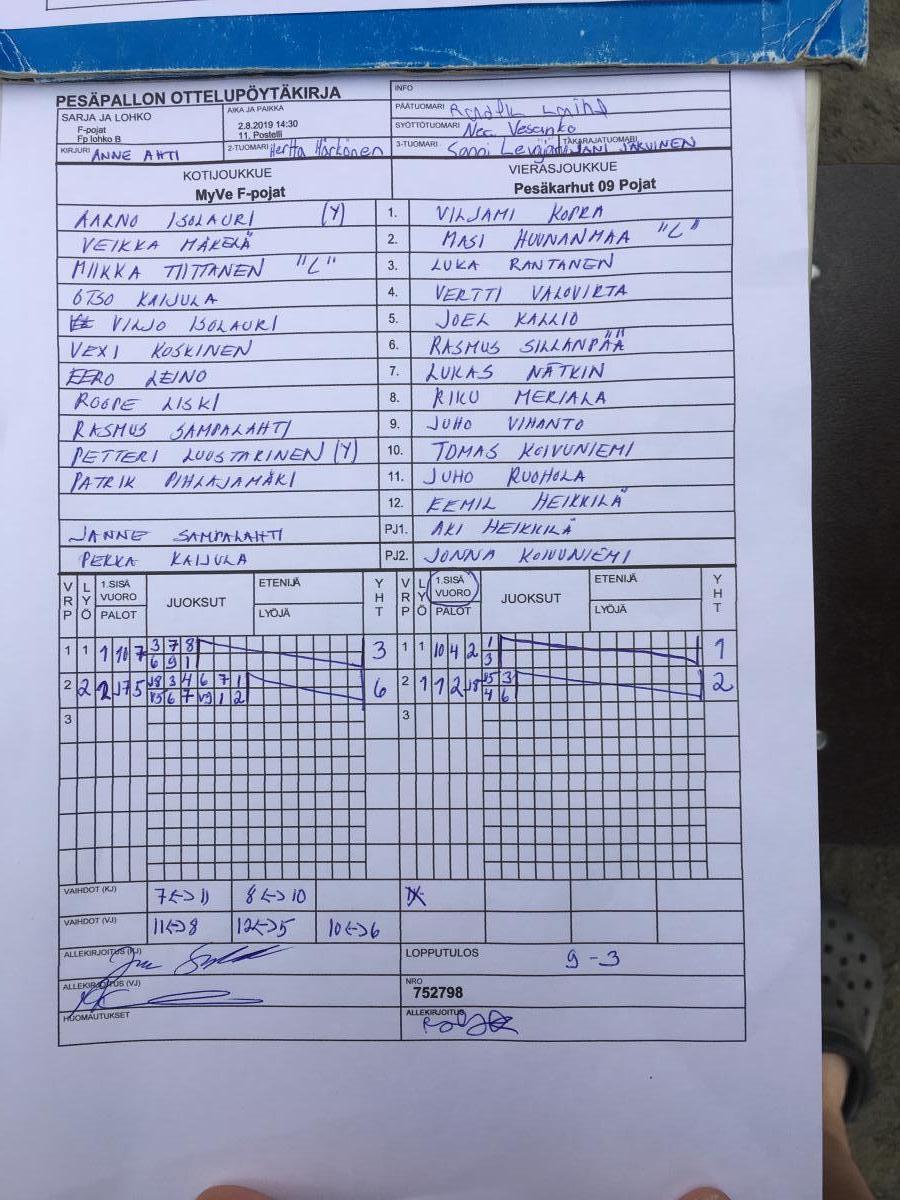 PESÄPALLON OTTELUPÖYTÄKIRJA
INFO
SARJA JA LOHKO
F-pojat
Fp lohko B
AIKA JA PAIKKA
2.8.2019 14:30
11. Postelli
PÄÄTUOMARI
SYÖTTÖTUOMARI Nea Vesanko
KIRJURI ANNE AHTI
2-TUOMARI Hertta Härkönen
3-TUOMARI Sanni
TAKARAJATUOMARI JANI JÄRVINEN
KOTIJOUKKUE
MyVe F-pojat
VIERASJOUKKUE
Pesäkarhut 09 Pojat
AARNO ISOLAURI (Y) 1. VILJAMI KOPRA
VEIKKA MÄKELÄ 2. MASI HUUNANMAA "L"
MIIKKA TIITTANEN "L" 3. LUKA RANTANEN
OTSO KAIJULA 4. VERTTI VALOVIRTA
VILJO ISOLAURI 5. JOEL KALLIO
VEXI KOSKINEN 6. RASMUS SILLANPÄÄ
EERO LEINO 7. LUKAS NÄTKIN
ROOPE LISKI 8. RIKU MERIALA
RASMUS SAMPALAHTI 9. JUHO VIHANTO
PETTERI LUOSTARINEN (Y) 10. TOMAS KOIVUNIEMI
PATRIK PIHLAJAMÄKI 11. JUHO RUOHOLA
12. EEMIL HEIKKILÄ
JANNE SAMPALAHTI PJ1. AKI HEIKKILÄ
PEKKA KAIJULA PJ2. JONNA KOIVUNIEMI
VRP LYÖ 1.SISÄ VUORO PALOT JUOKSUT ETENIJÄ LYÖJÄ YHT VRP LYÖ 1.SISÄ VUORO PALOT JUOKSUT ETENIJÄ LYÖJÄ YHT
1 1 1 10 7 3 7 8 3 1 1 10 4 2 1 1
6 9 1 3
2 2 2 J7 5 J8 3 4 6 7 1 6 2 1 1 2 J8 J5 3 2
J5 6 7 J9 1 2 4 6
3 3
VAIHDOT (KJ) 7<->11 8<->10
VAIHDOT (VJ) 11<->8 12<->5 10<->6
ALLEKIRJOITUS (KJ)
LOPPUTULOS 9-3
ALLEKIRJOITUS (VJ)
NRO
752798
HUOMAUTUKSET
ALLEKIRJOITUS